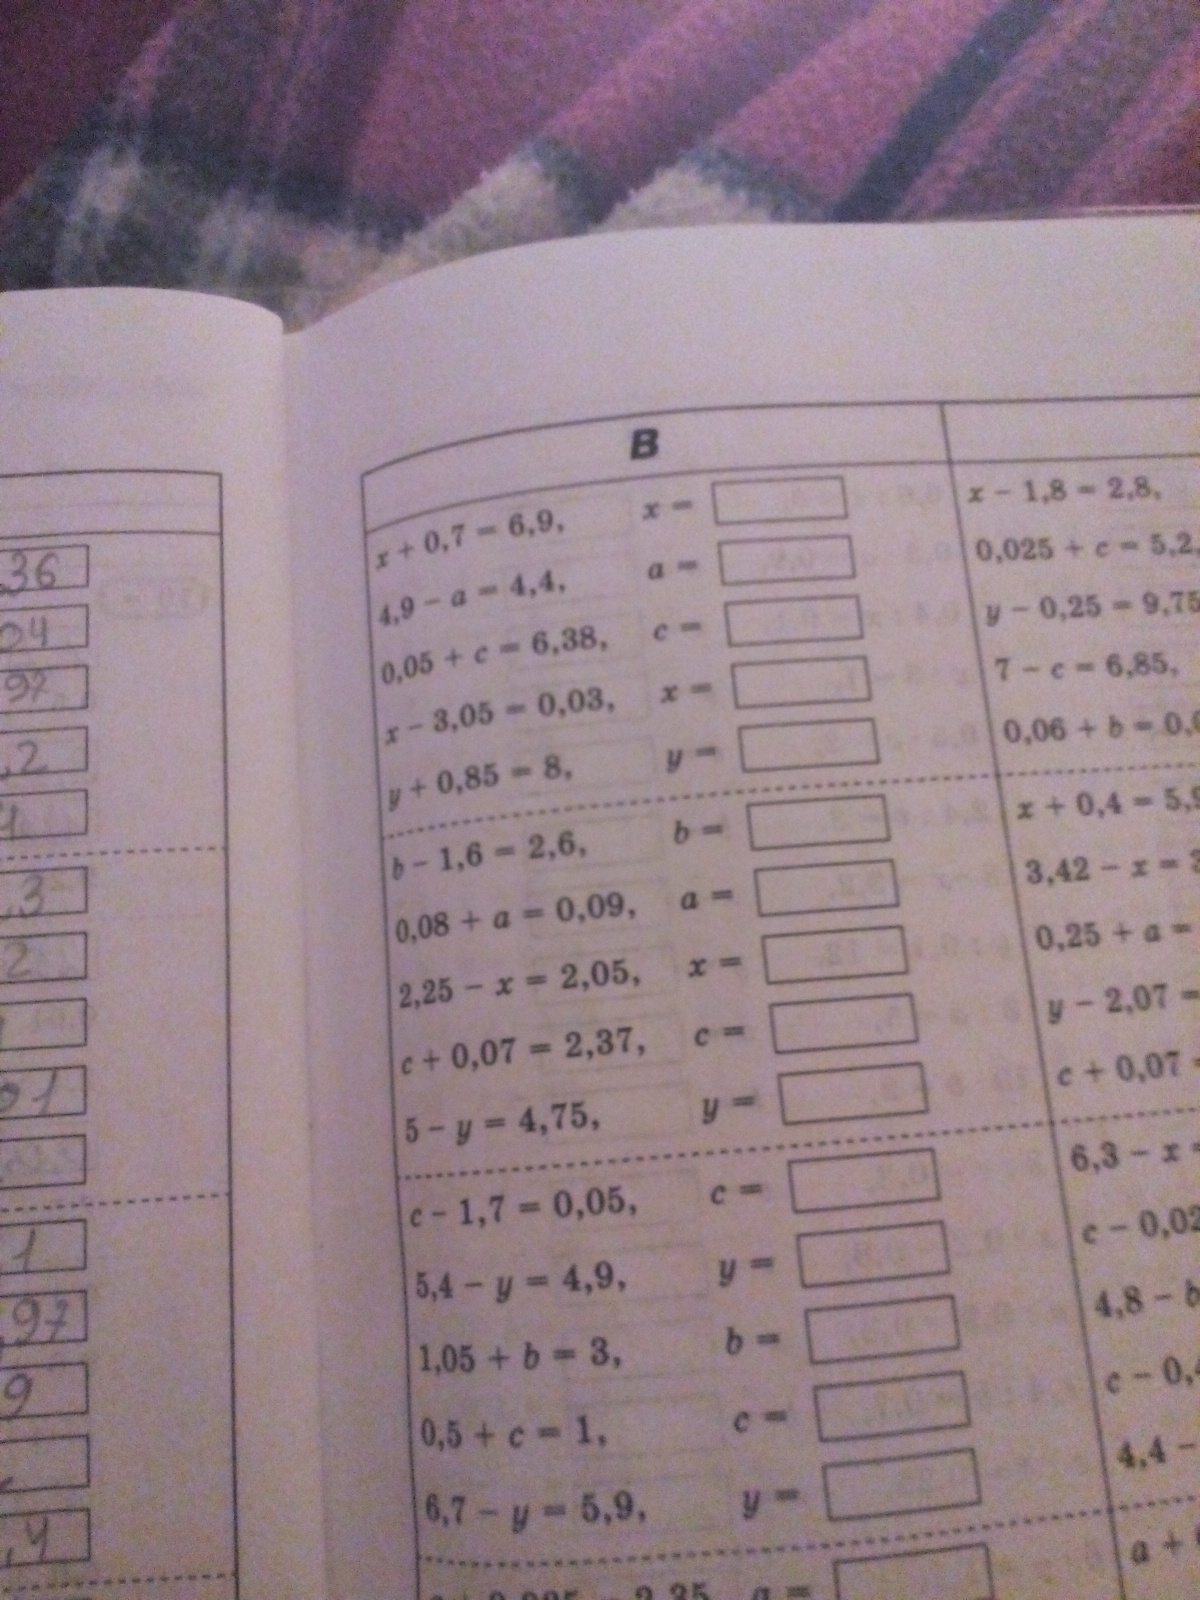 36
04
97
,2
4
,3
2
01
1
97
9
,4
В
x + 0,7 = 6,9, x =
4,9 − a = 4,4, a =
0,05 + c = 6,38, c =
x − 3,05 = 0,03, x =
y + 0,85 = 8, y =
b − 1,6 = 2,6, b =
0,08 + a = 0,09, a =
2,25 − x = 2,05, x =
c + 0,07 = 2,37, c =
5 − y = 4,75, y =
c − 1,7 = 0,05, c =
5,4 − y = 4,9, y =
1,05 + b = 3, b =
0,5 + c = 1, c =
6,7 − y = 5,9, y =
2,35 a =
x − 1,8 = 2,8,
0,025 + c = 5,2,
y − 0,25 = 9,75
7 − c = 6,85,
0,06 + b = 0,
x + 0,4 = 5,9
3,42 − x = 3
0,25 + a =
y − 2,07 =
c + 0,07 =
6,3 − x =
c − 0,02
4,8 − b
c − 0,4
4,4 −
a +